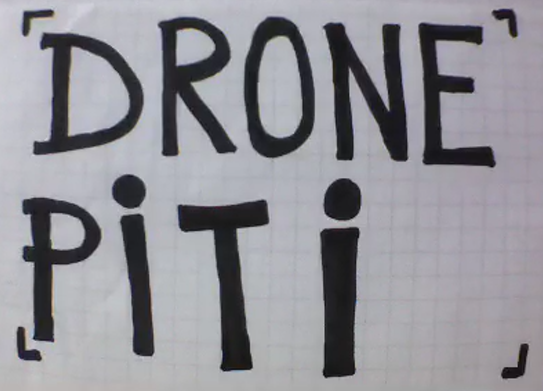 DRONE
PiTi